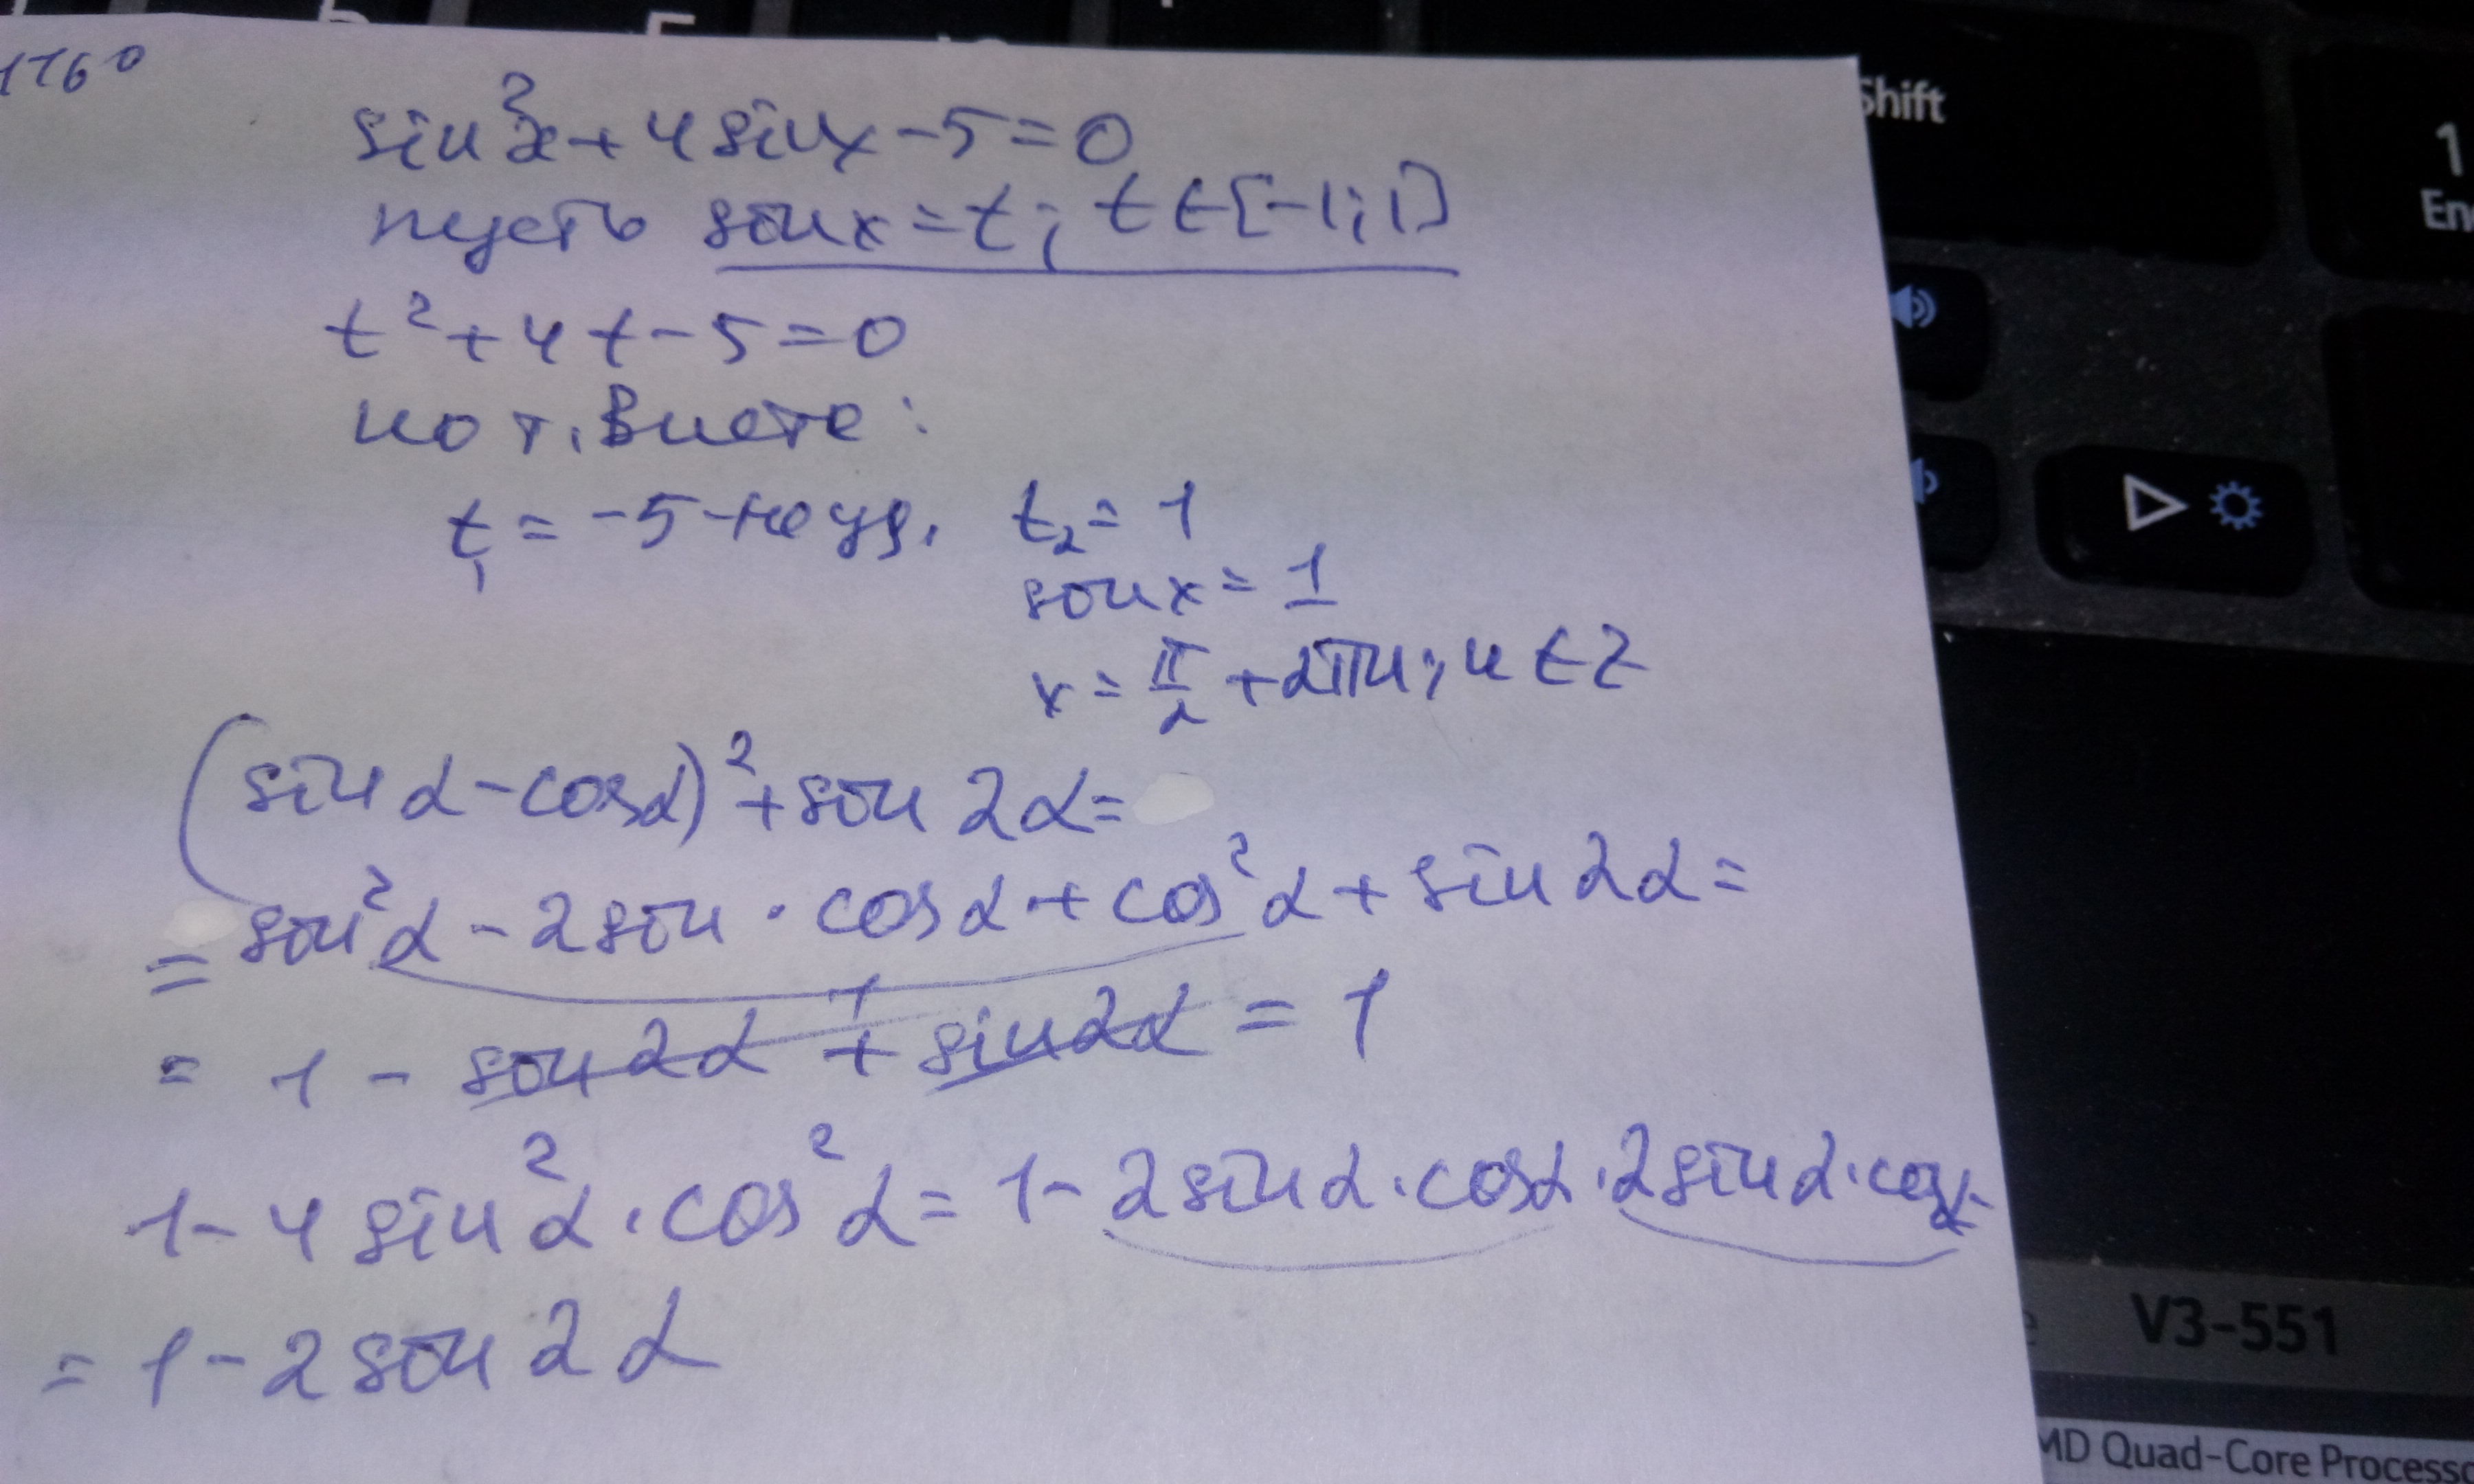 1160
sin²x+4sinx-5=0
пусть sinx=t; t∈[-1;1]
t²+4t-5=0
по т. Виета:
t₁=-5-не уд. t₂=1
sinx=1
x=π/2+2πn; n∈Z
(sinα-cosα)²+sin2α=
=sin²α-2sin·cosα+cos²α+sin2α=
1
=1-sin2α+sin2α=1
1-4sin²α·cos²α=1-2sinα·cosα·2sinα·cosα=
=1-2sin2α
Shift
1
End
V3-551
MD Quad-Core Processo